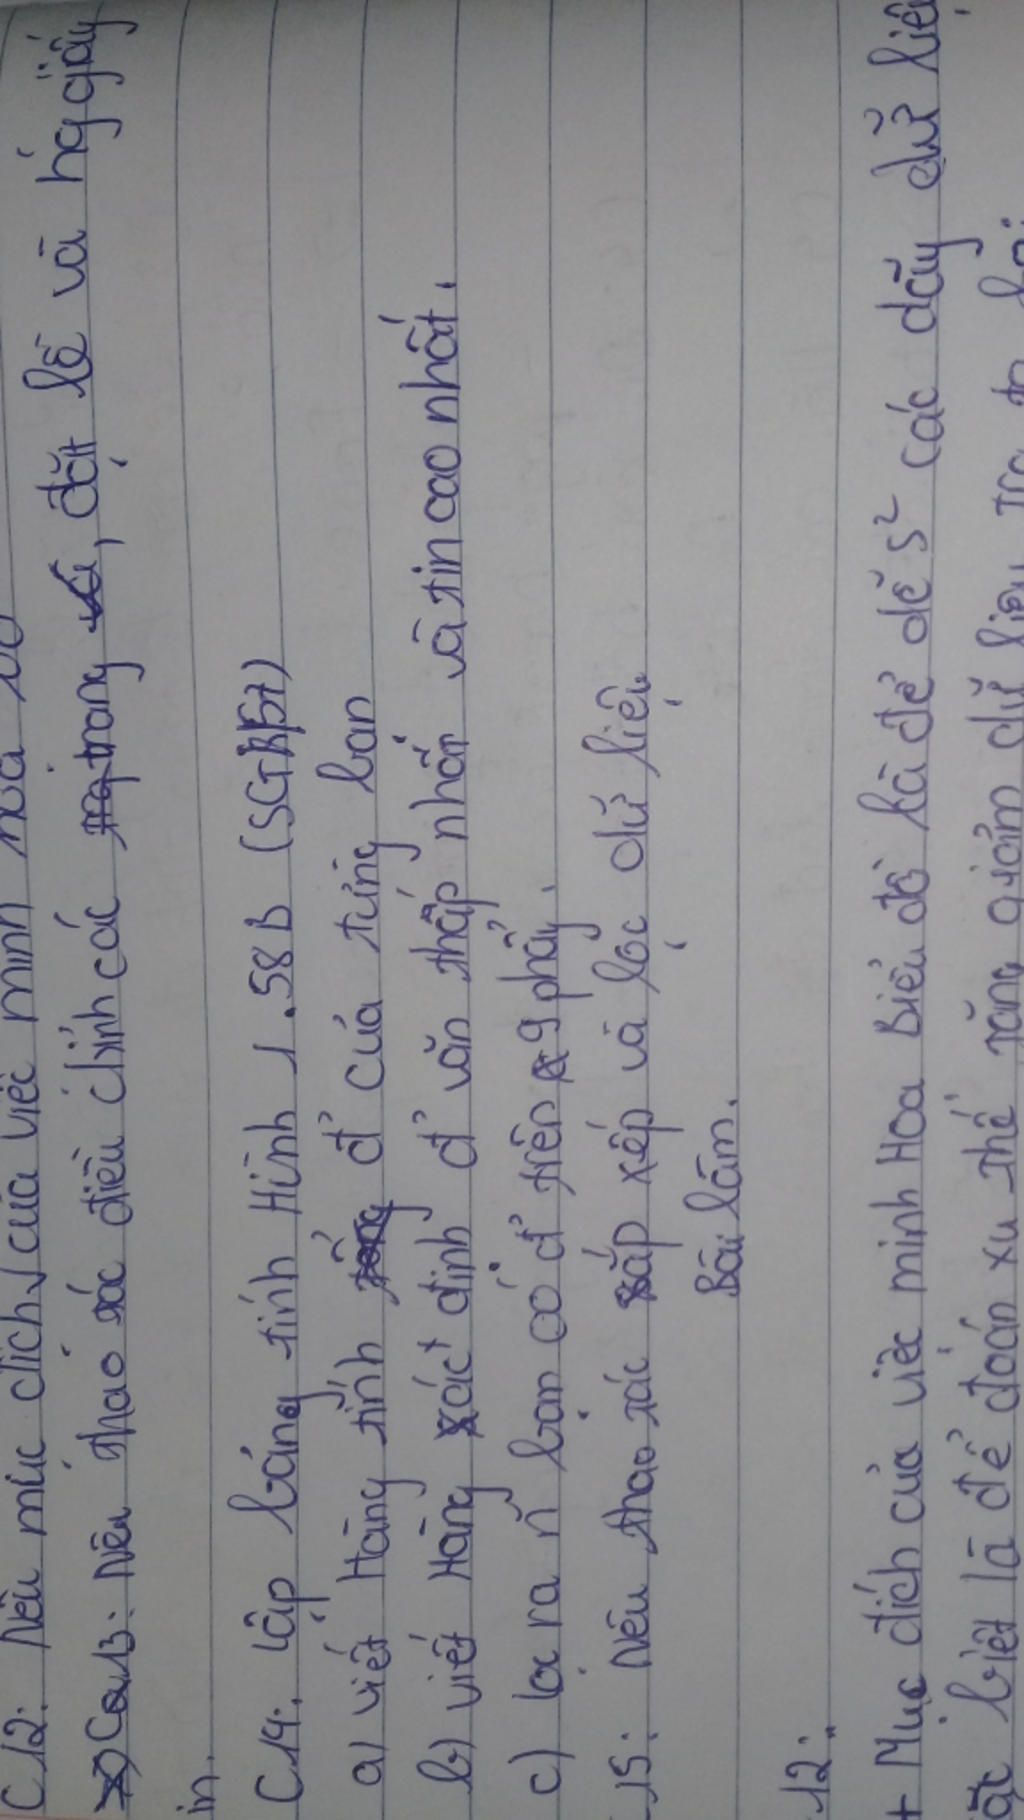 C12: Nêu mục đích của việc minh
Câu13: Nêu thao tác điều chỉnh các trang, đặt lề và hg giấy
in.
C14: Lập bảng tính Hình 1.58B (SGT
a) viết Hàng tính đ' của từng bạn
b) viết Hàng xác định đ' văn thấp nhấn và tin cao nhất.
c) lọc ra n~ bạn có đ' trên 9 phẩy.
15: Nêu thao tác sắp xếp và lọc dữ liệu
Bài làm.
12:
+ Mục đích của việc minh Hoa Biểu đồ là để dễ s² các dãy dữ liệu
biệt là để đoán xu thế tăng giảm dữ liệu